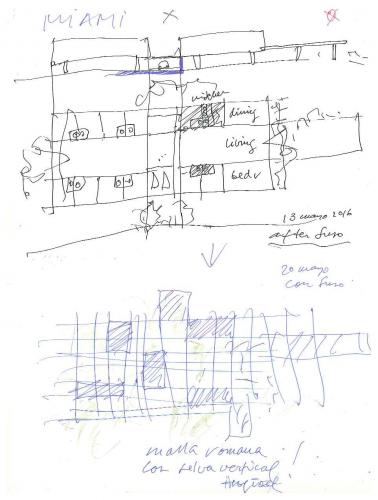 MIAMI
kitchen
dining
living
bedr
13 mayo 2016
after fuso
20 mayo
con fuso
malla romana
con selva vertical